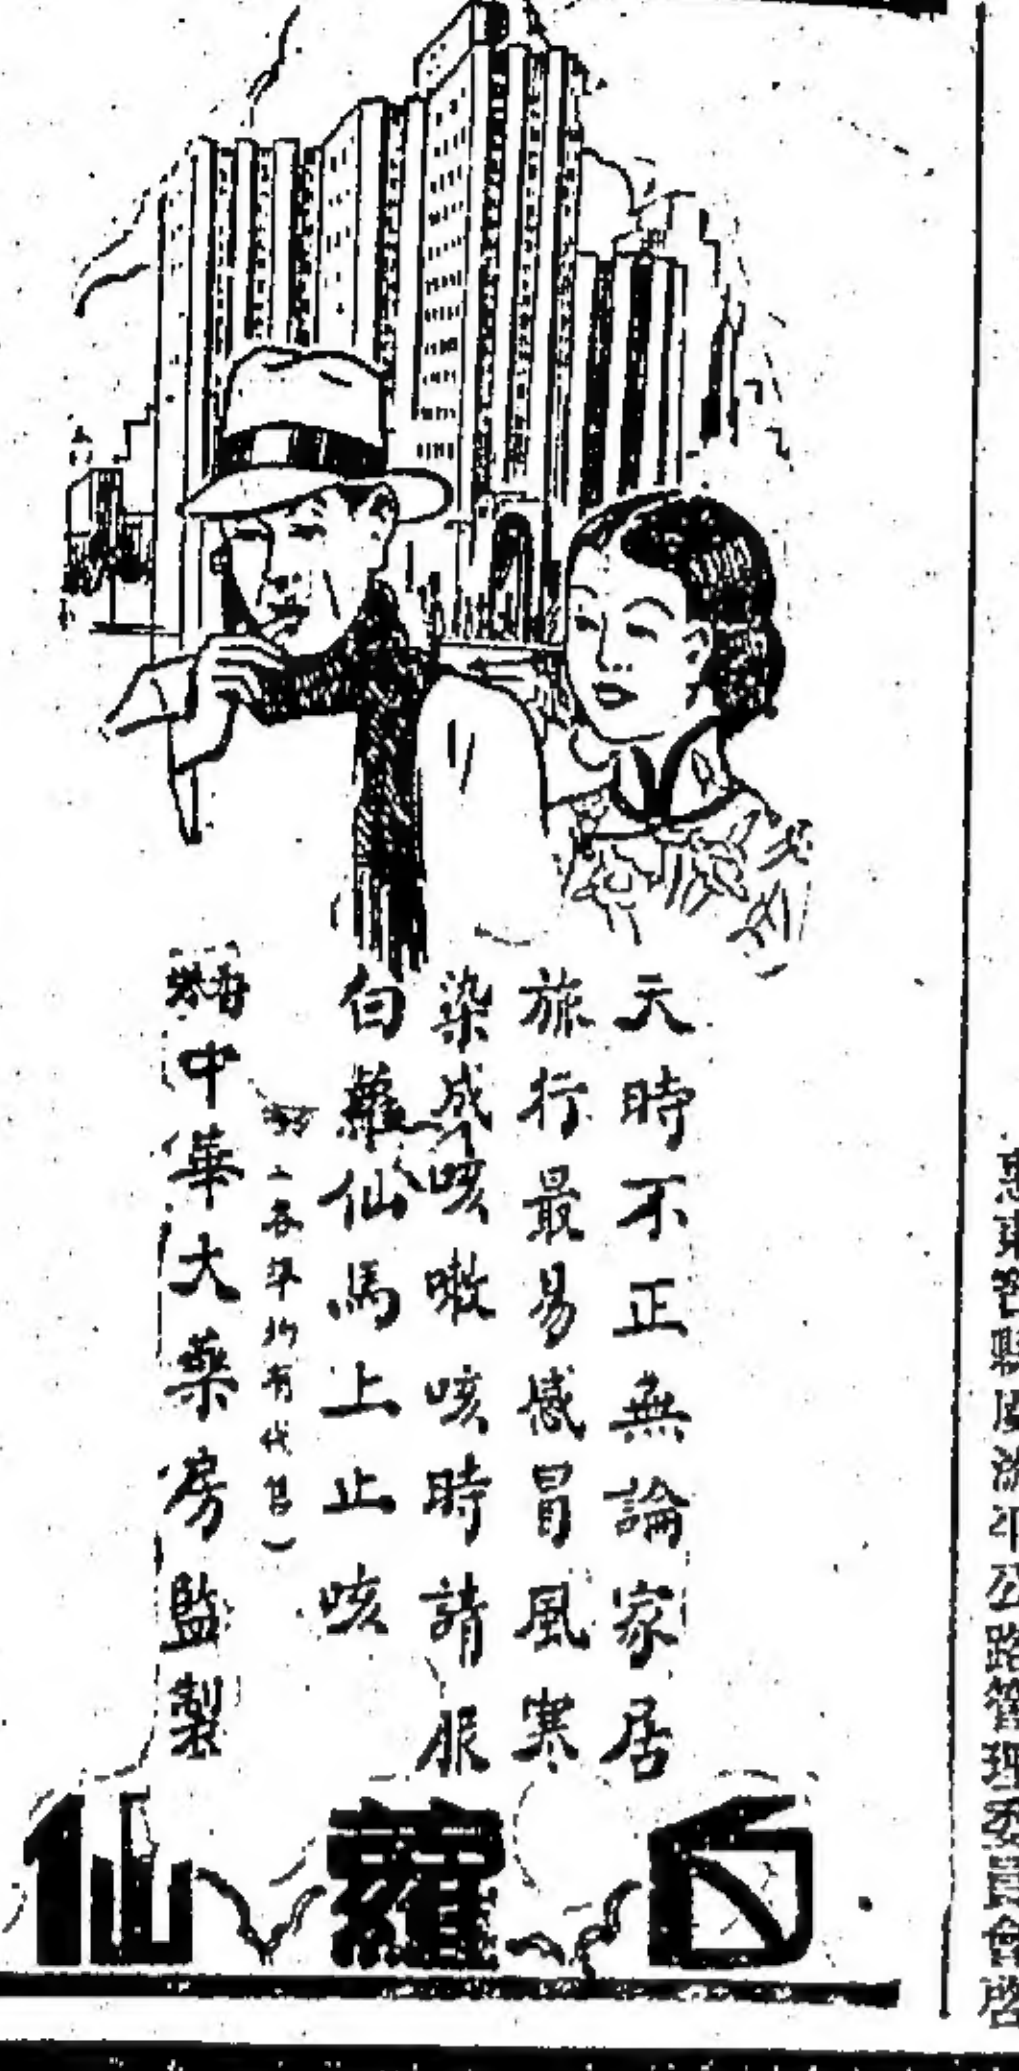 天時不正無論家居
旅行最易感冒風寒
染成咳嗽咳時請服
白蘿仙馬上止咳
各埠均有代售）
中華大藥房監製
白蘿仙
公路管理委員會啓